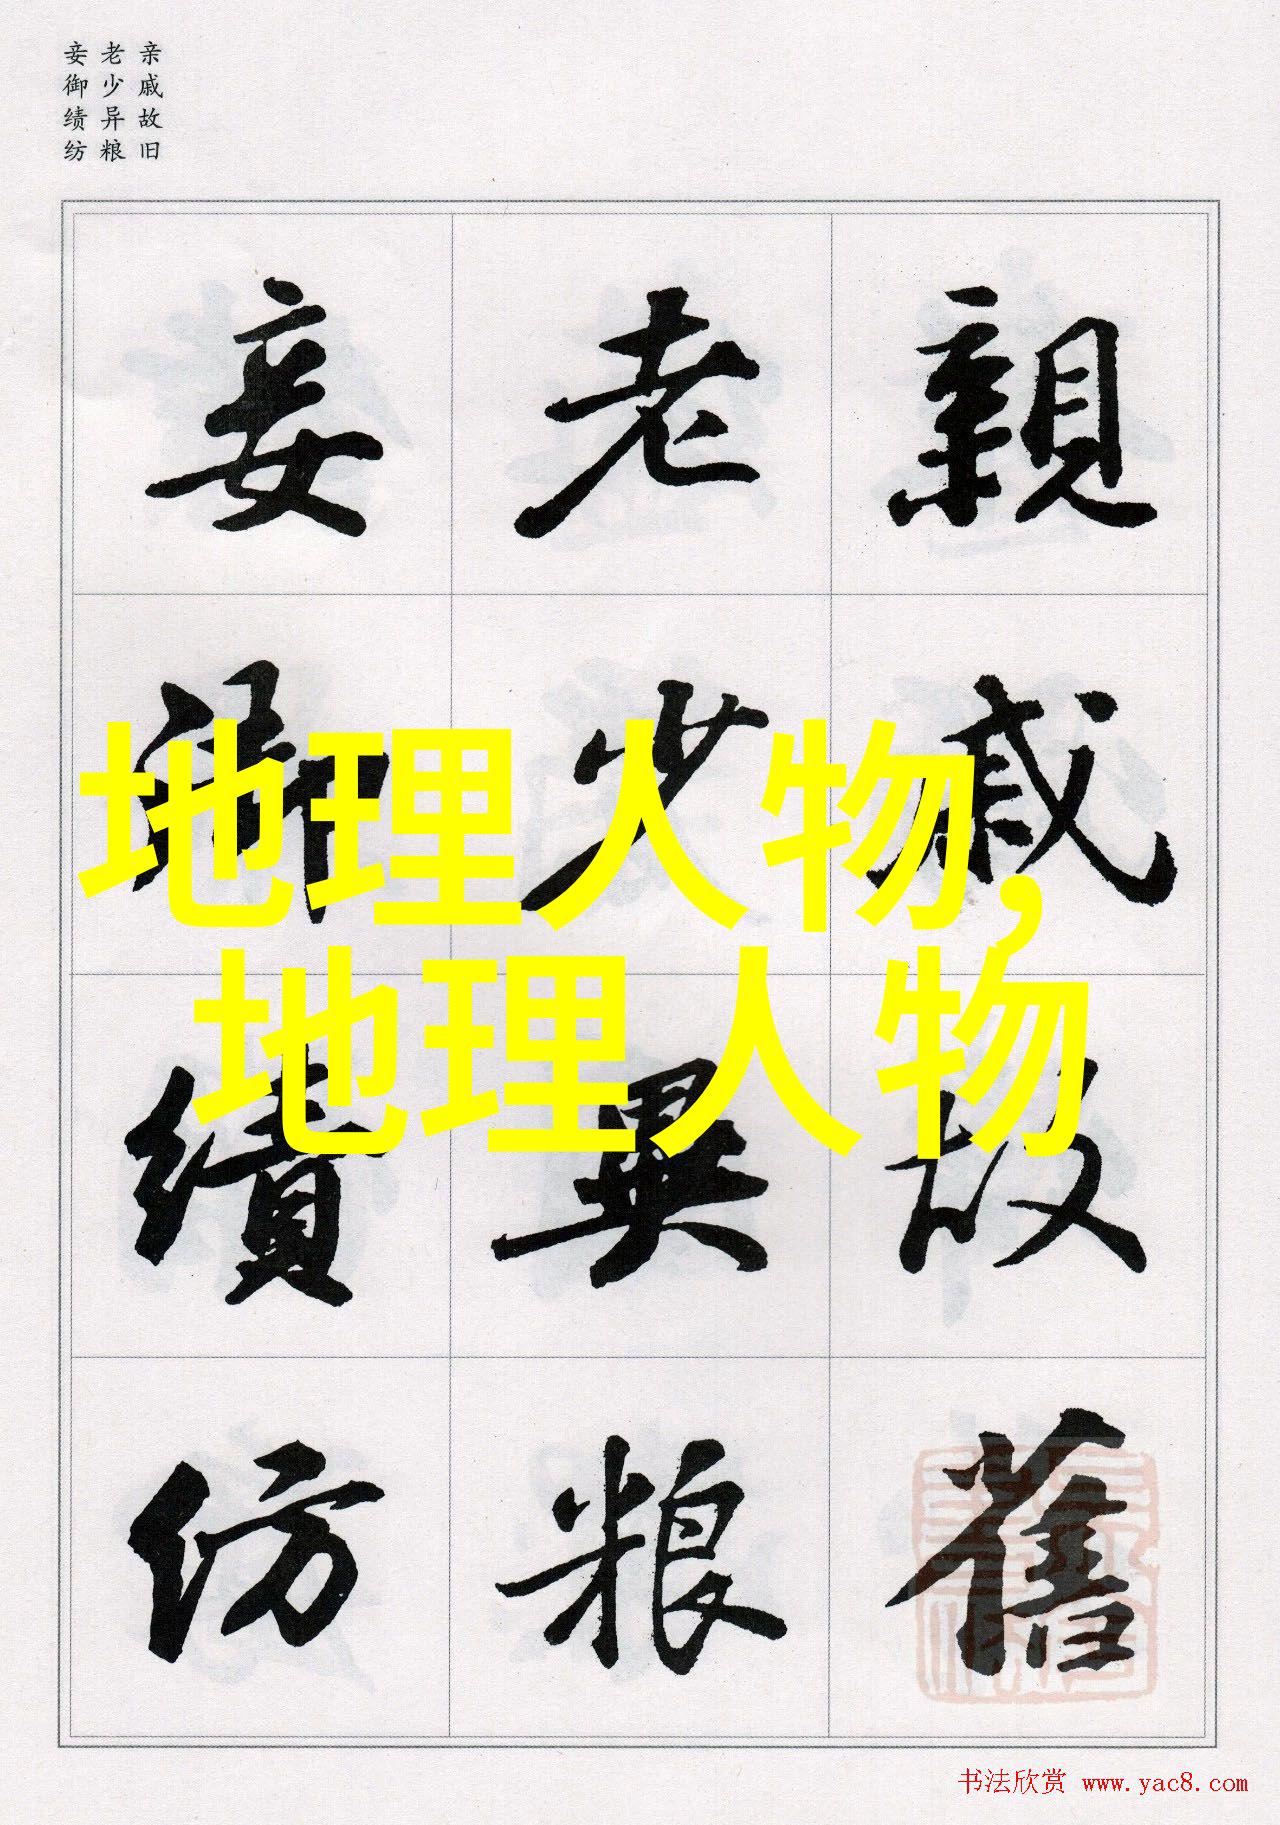 亲戚故旧
老少异粮
妾御绩纺
親戚故舊
老少異粮
妾御績紡
地理人物,
地理人物
书法欣赏 www.yac8.com